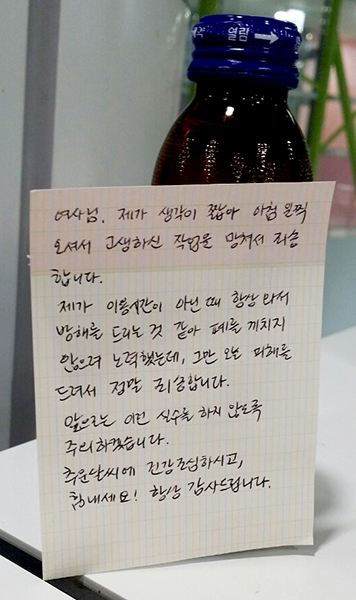 열림
여사님. 제가 생각이 짧아 아침 일찍
오셔서 고생하신 작업을 망쳐서 죄송
합니다.
제가 이용시간이 아닌 때 항상 와서
방해를 드리는 것 같아 폐를 끼치지
않으려 노력했는데, 그만 오늘 피해를
드려서 정말 죄송합니다.
앞으로는 이런 실수를 하지 않도록
주의하겠습니다.
추운날씨에 건강조심하시고,
힘내세요! 항상 감사드립니다.